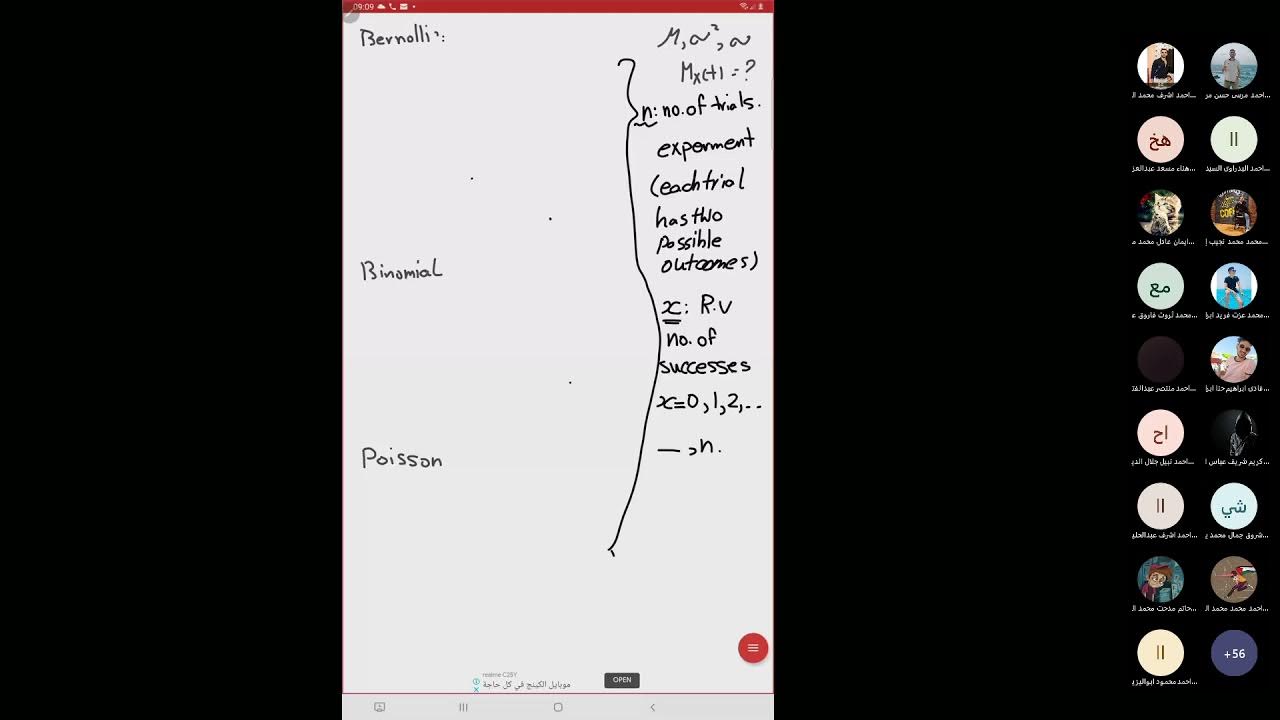 09:09
Bernolli:
μ, σ², σ
Mx(t) = ?
n: no. of trials.
experment
(each trial
has two
possible
outcomes)
Binomial
x: R.V
no. of
successes
x=0,1,2,..
—,n.
Poisson
realme C25Y
موبايل الكينج في كل حاجة
OPEN
احمد اشرف محمد ال...
احمد مرسى حسن مر...
هخ
هناء مسعد عبدالعز...
اا
احمد البدراوى السيد...
ايمان عادل محمد م...
محمد محمد نجيب إ...
مع
محمد ثروت فاروق ع...
محمد عزت فريد ابرا...
احمد منتصر عبدالفت...
فادى ابراهيم حنا ابرا...
اح
احمد نبيل جلال الدي...
كريم شريف عباس ا...
اا
احمد اشرف عبدالحلي...
شي
شروق جمال محمد ي...
حاتم مدحت محمد ال...
احمد محمد محمد ال...
اا
احمد محمود ابواليزي...
+56